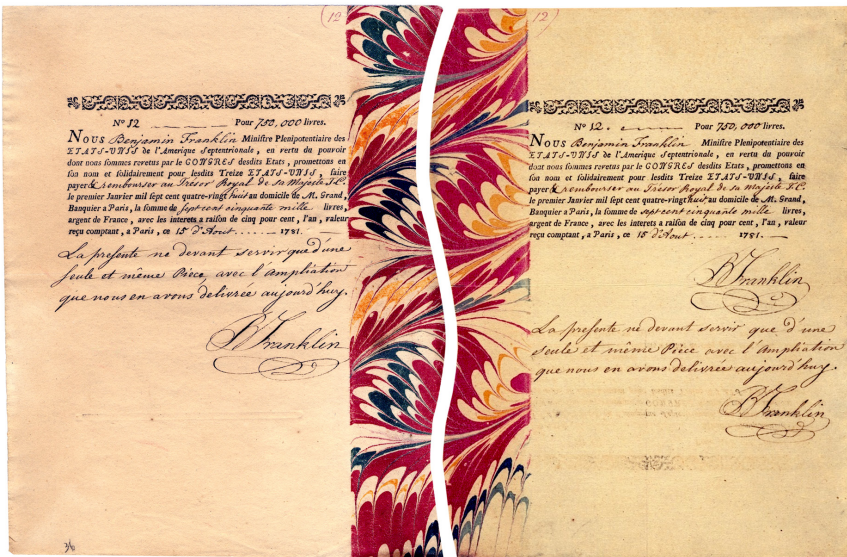 (12
12)
Nº 12 Pour 750,000 livres.
NOUS Benjamin Franklin Miniſtre Plenipotentiaire des
ETATS-UNIS de l'Amerique Septentrionale, en vertu du pouvoir
dont nous ſommes revetus par le CONGRES deſdits Etats, promettons en
ſon nom et ſolidairement pour leſdits Treize ETATS-UNIS, faire
payer & rembourser au Trésor Royal de sa Majesté T. C.
le premier Janvier mil ſept cent quatre-vingt huit au domicile de M. Grand,
Banquier a Paris, la ſomme de sept cent cinquante mille livres,
argent de France, avec les interets a raiſon de cinq pour cent, l'an, valeur
reçu comptant, a Paris, ce 15 d'Aout 1781.
La presente ne devant servir que d'une
seule et même Piece avec l'Ampliation
que nous en avons delivrée aujourd'huy.
B Franklin
36
Nº 12. Pour 750,000 livres.
NOUS Benjamin Franklin Miniſtre Plenipotentiaire des
ETATS-UNIS de l'Amerique Septentrionale, en vertu du pouvoir
dont nous ſommes revetus par le CONGRES deſdits Etats, promettons en
ſon nom et ſolidairement pour leſdits Treize ETATS-UNIS, faire
payer & rembourser au Trésor Royal de sa Majesté T. C.
le premier Janvier mil ſept cent quatre-vingt huit au domicile de M. Grand,
Banquier a Paris, la ſomme de sept cent cinquante mille livres,
argent de France, avec les interets a raiſon de cinq pour cent, l'an, valeur
reçu comptant, a Paris, ce 15 d'Aout 1781.
B Franklin
La presente ne devant servir que d'une
seule et même Piece avec l'Ampliation
que nous en avons delivrée aujourd'huy.
B Franklin